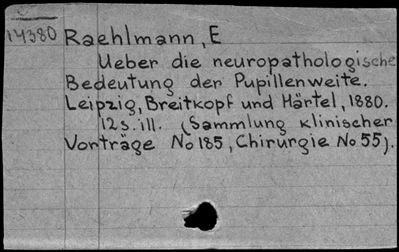 14380 Raehlmann, E
Ueber die neuropathologische
Bedeutung der Pupillenweite.
Leipzig, Breitkopf und Härtel, 1880.
12 s. ill. (Sammlung klinischer
Vorträge No 185, Chirurgie No 55).